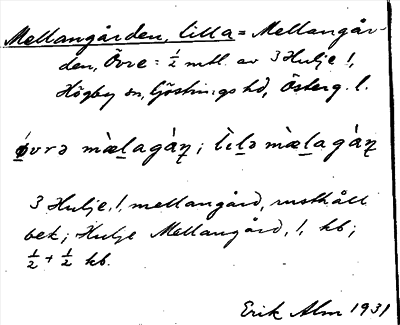 Mellangården, lilla = Mellangår-
den, Övre: ½ mtl. av 3 Hulje !,
Högby sn, Göstrings hd, Österg. l.
ǿvrə mæ̀lagàṇ; lìlə mæ̀lagàṇ
3 Hulje, !, mellangård, rusthåll
bet; Hulje Mellangård, !, kb;
½ + ½ kb.
Erik Alm 1931